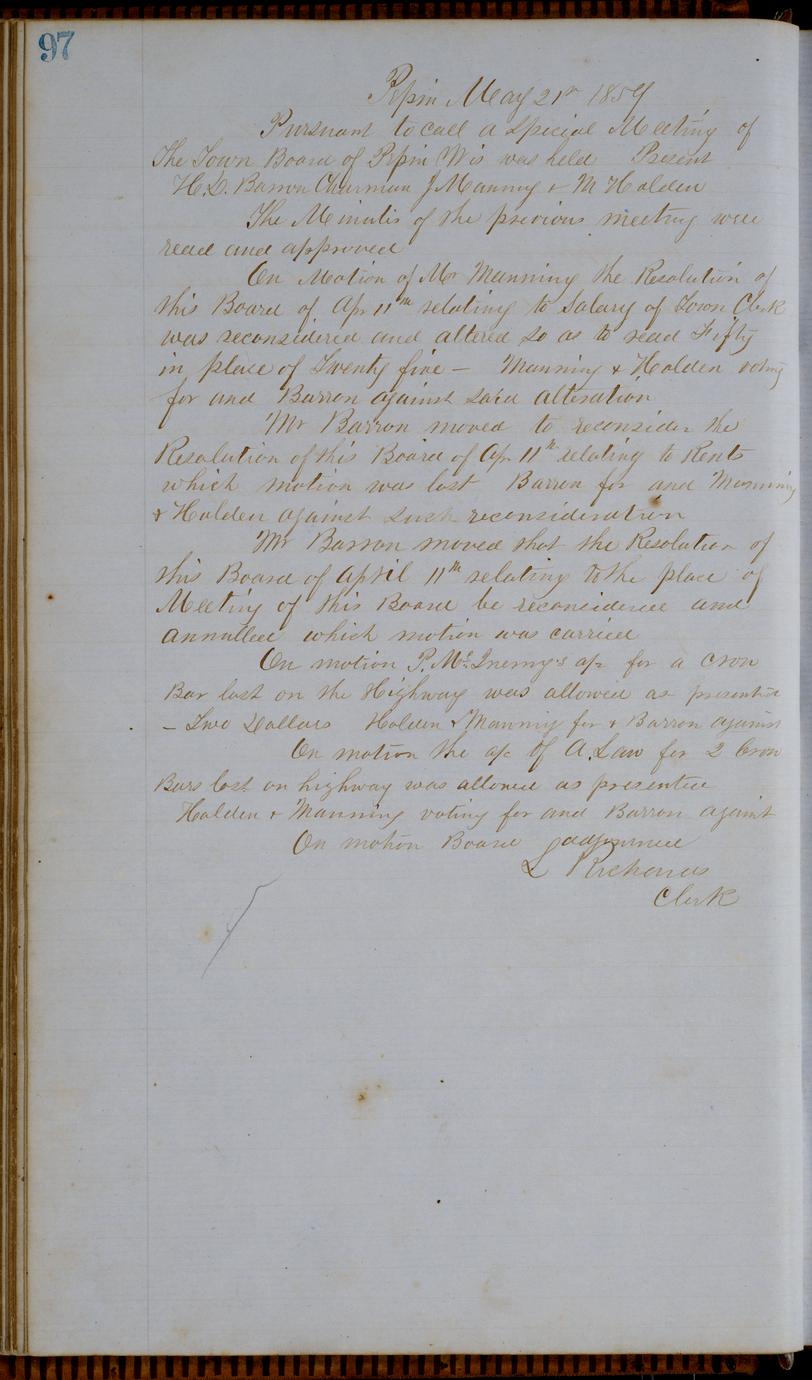 97
Pepin May 21st 1859
Pursuant to call a Special Meeting of
The Town Board of Pepin Wis was held Present
H.D. Barron Chairman J Manning & M Holden
The Minutes of the previous meeting were
read and approved
On Motion of Mr Manning the Resolution of
this Board of Apr 11th relating to Salary of Town Clerk
was reconsidered and altered so as to read Fifty
in place of Twenty five — Manning & Holden voting
for and Barron against said alteration
Mr Barron moved to reconsider the
Resolution of this Board of Apr 11th relating to Rents
which motion was lost Barron for and Manning
& Holden against such reconsideration
Mr Barron moved that the Resolution of
this Board of April 11th relating to the place of
Meeting of this Board be reconsidered and
annulled which motion was carried
On motion P. a/c for a Crow
Bar lost on the Highway was allowed as presented
— Two Dollars Holden & Manning for & Barron against
On motion the a/c of A. Law for 2 Crow
Bars lost on highway was allowed as presented
Holden & Manning voting for and Barron against
On motion Board adjourned
L Richards
Clerk